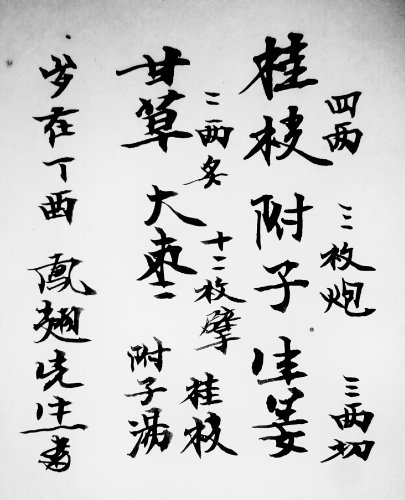 桂枝 附子 生姜
四两 三枚炮 三两切
甘草 大枣
二两炙 十二枚擘
桂枝
附子汤
岁在丁酉 鳳翘先生